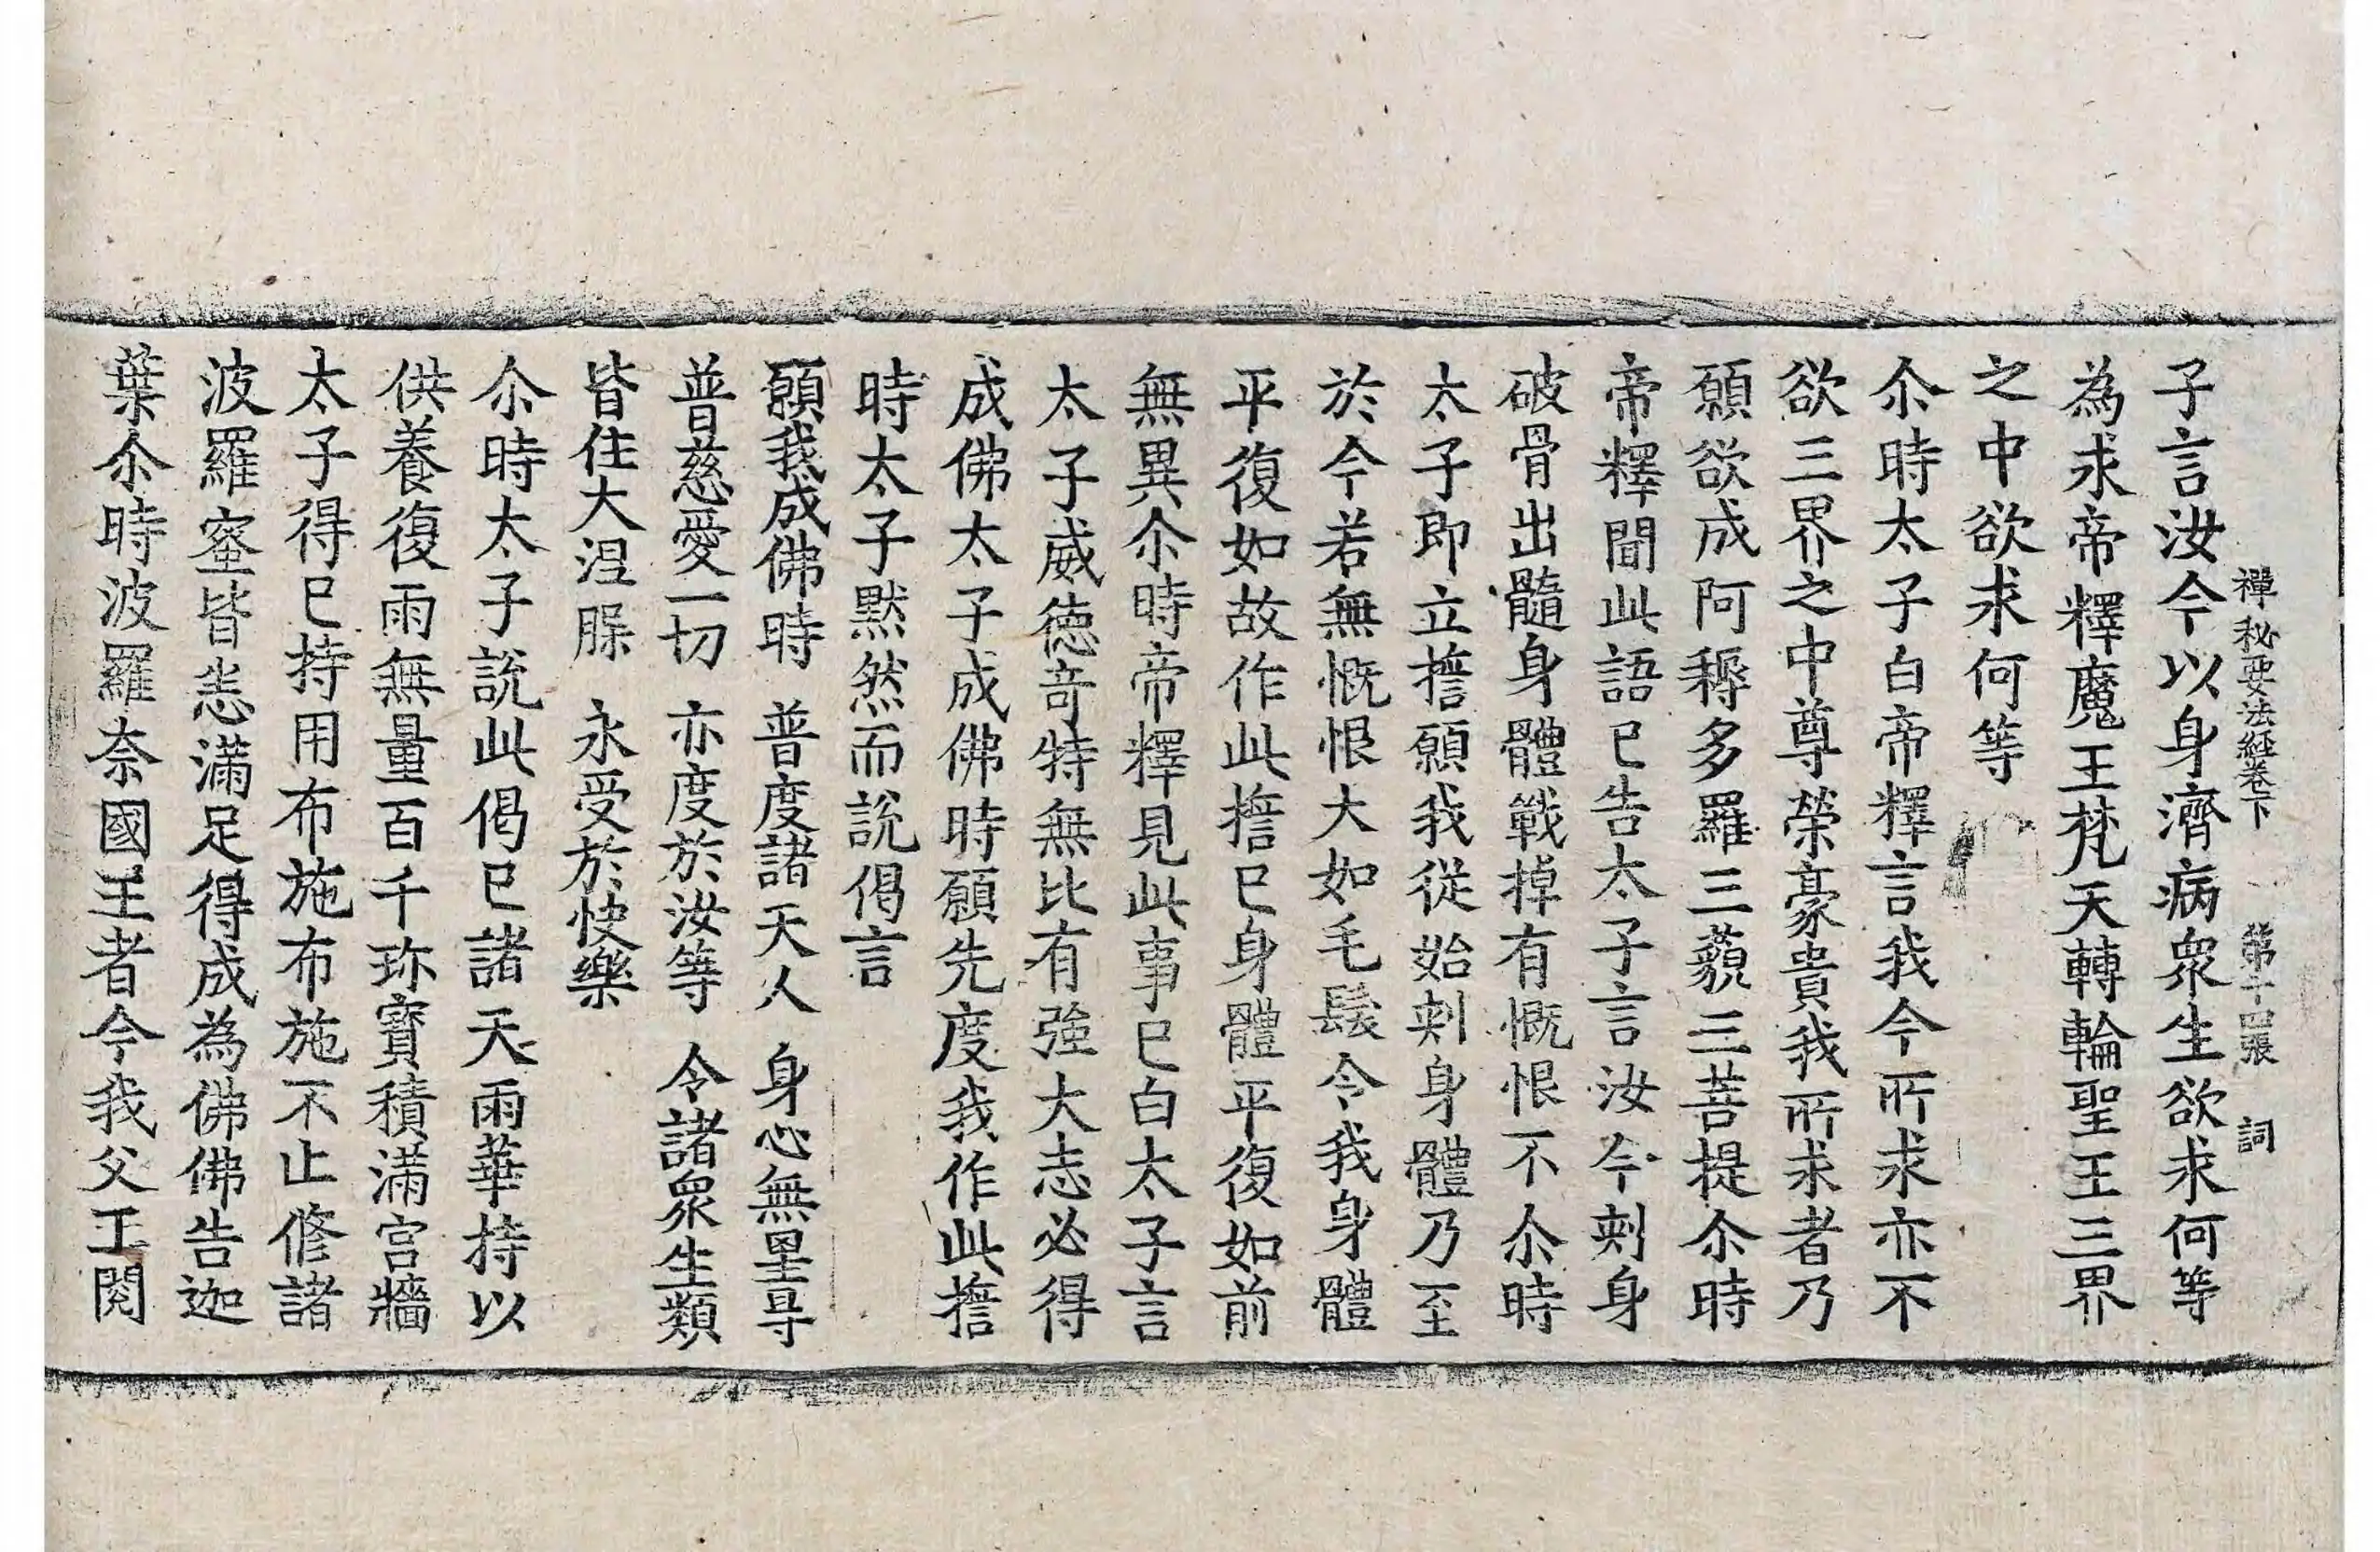 禪秘要法經卷下 第十四張 詞
子言汝今以身濟病衆生欲求何等
為求帝釋魔王梵天轉輪聖王三界
之中欲求何等
尒時太子白帝釋言我今所求亦不
欲三界之中尊榮豪貴我所求者乃
願欲成阿耨多羅三藐三菩提尒時
帝釋聞此語已告太子言汝今刺身
破骨出髓身體戰掉有慨恨不尒時
太子即立擔願我從始刺身體乃至
於今若無慨恨大如毛髮令我身體
平復如故作此擔已身體平復如前
無異尒時帝釋見此事已白太子言
太子威德奇特無比有強大志必得
成佛太子成佛時願先度我作此擔
時太子黙然而說偈言
願我成佛時 普度諸天人 身心無罣㝵
普慈愛一切 亦度於汝等 令諸衆生類
皆住大涅 永受於快樂
尒時太子說此偈已諸天雨華持以
供養復雨無量百千珎寶積滿宮牆
太子得已持用布施布施不止修諸
波羅蜜皆悉滿足得成為佛佛告迦
葉尒時波羅奈國王者今我父王閱